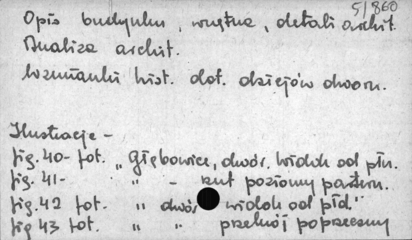 5/860
Opis budynku, wnętrza, detali archit.
Analiza archit.
Wzmianki hist. dot. dziejów dworu.
Ilustracje -
fig. 40 - fot. „Głębowice, dwór, widok od płn.
fig. 41 - „ - rzut poziomy parteru.
fig. 42 fot. „ dwór widok od płd."
fig 43 fot. „ „ przekrój poprzeczny